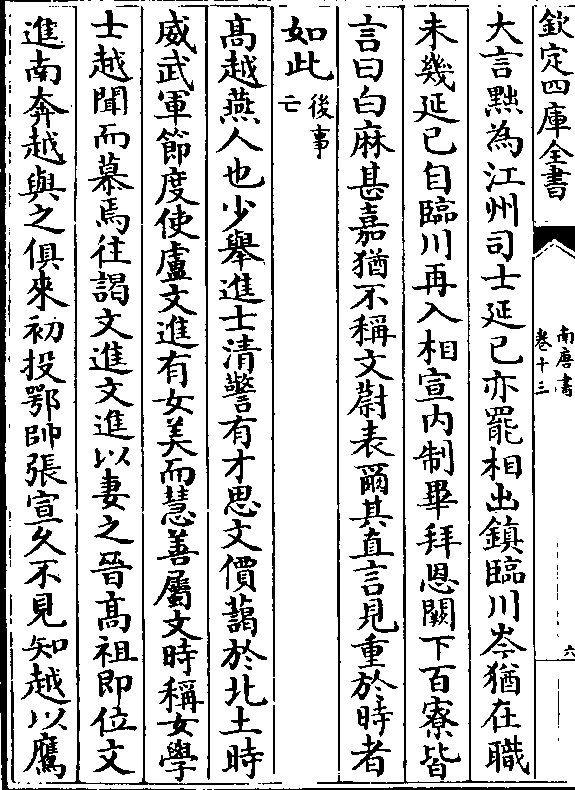 欽定四庫全書
南唐書
卷十三
六
大言黜為江州司士延已亦罷相出鎮臨川岑猶在職
未幾延已自臨川再入相宣内制畢拜恩闕下百寮皆
言曰白麻甚嘉猶不稱文蔚表爾其直言見重於時者
如此後事亡
髙越燕人也少舉進士清警有才思文價藹於北土時
威武軍節度使盧文進有女美而慧善屬文時稱女學
士越聞而慕焉往謁文進文進以妻之晉髙祖即位文
進南奔越與之俱來初投鄂帥張宣久不見知越以鷹